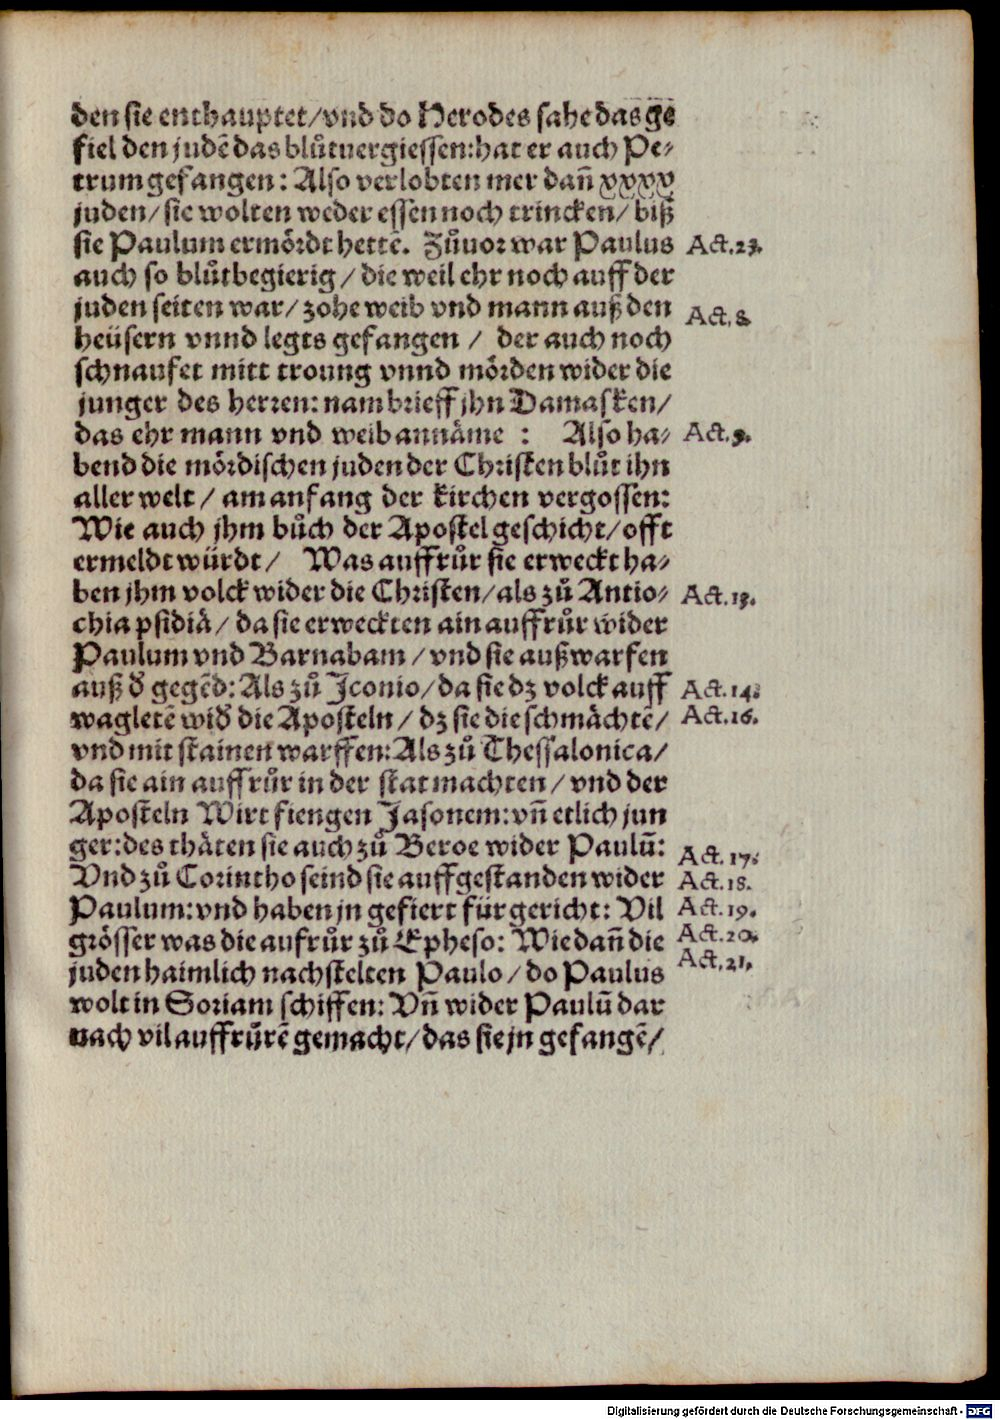 den sie enthauptet/vnd do Herodes sahe das ge
fiel den judẽ das blůtuergiessen:hat er auch Pe⸗
trum gefangen: Also verlobten mer dañ xxxx
juden/ sie wolten weder essen noch trincken/ biß
sie Paulum ermördt hettẽ. Zůuor war Paulus Act.23.
auch so blůtbegierig / die weil ehr noch auff der
juden seiten war/ zohe weib vnd mann auß den Act.8.
heüsern vnnd legts gefangen / der auch noch
schnaufet mitt troung vnnd mörden wider die
junger des herren: nam brieff jhn Damasken/
das ehr mann vnd weib annäme : Also ha⸗ Act.9.
bend die mördischen juden der Christen blůt ihn
aller welt / am anfang der kirchen vergossen:
Wie auch jhm bůch der Apostel geschicht/ offt
ermeldt würdt/ Was auffrůr sie erweckt ha⸗
ben jhm volck wider die Christen/ als zů Antio⸗ Act.13.
chia psidiä/ da sie erweckten ain auffrůr wider
Paulum vnd Barnabam /vnd sie außwarfen
auß d̕ gegẽd: Als zů Iconio/da sie dz volck auff Act.14.
wagletẽ wid̕ die Aposteln/ dz sie die schmächtẽ/ Act.16.
vnd mit stainen warffen: Als zů Thessalonica/
da sie ain auffrůr in der stat machten/ vnd der
Aposteln Wirt fiengen Jasonem: vñ etlich jun
ger: des thäten sie auch zů Beroe wider Paulũ: Act.17.
Vnd zů Corintho seind sie auffgestanden wider Act.18.
Paulum: vnd haben jn gefiert für gericht: Vil Act.19.
grösser was die aufrůr zů Epheso: Wie dañ die Act.20.
juden haimlich nachstelten Paulo/ do Paulus Act.21.
wolt in Soriam schiffen: Vñ wider Paulũ dar
nach vil auffrůrẽ gemacht/ das sie jn gefangẽ/
Digitalisierung gefördert durch die Deutsche Forschungsgemeinschaft - DFG